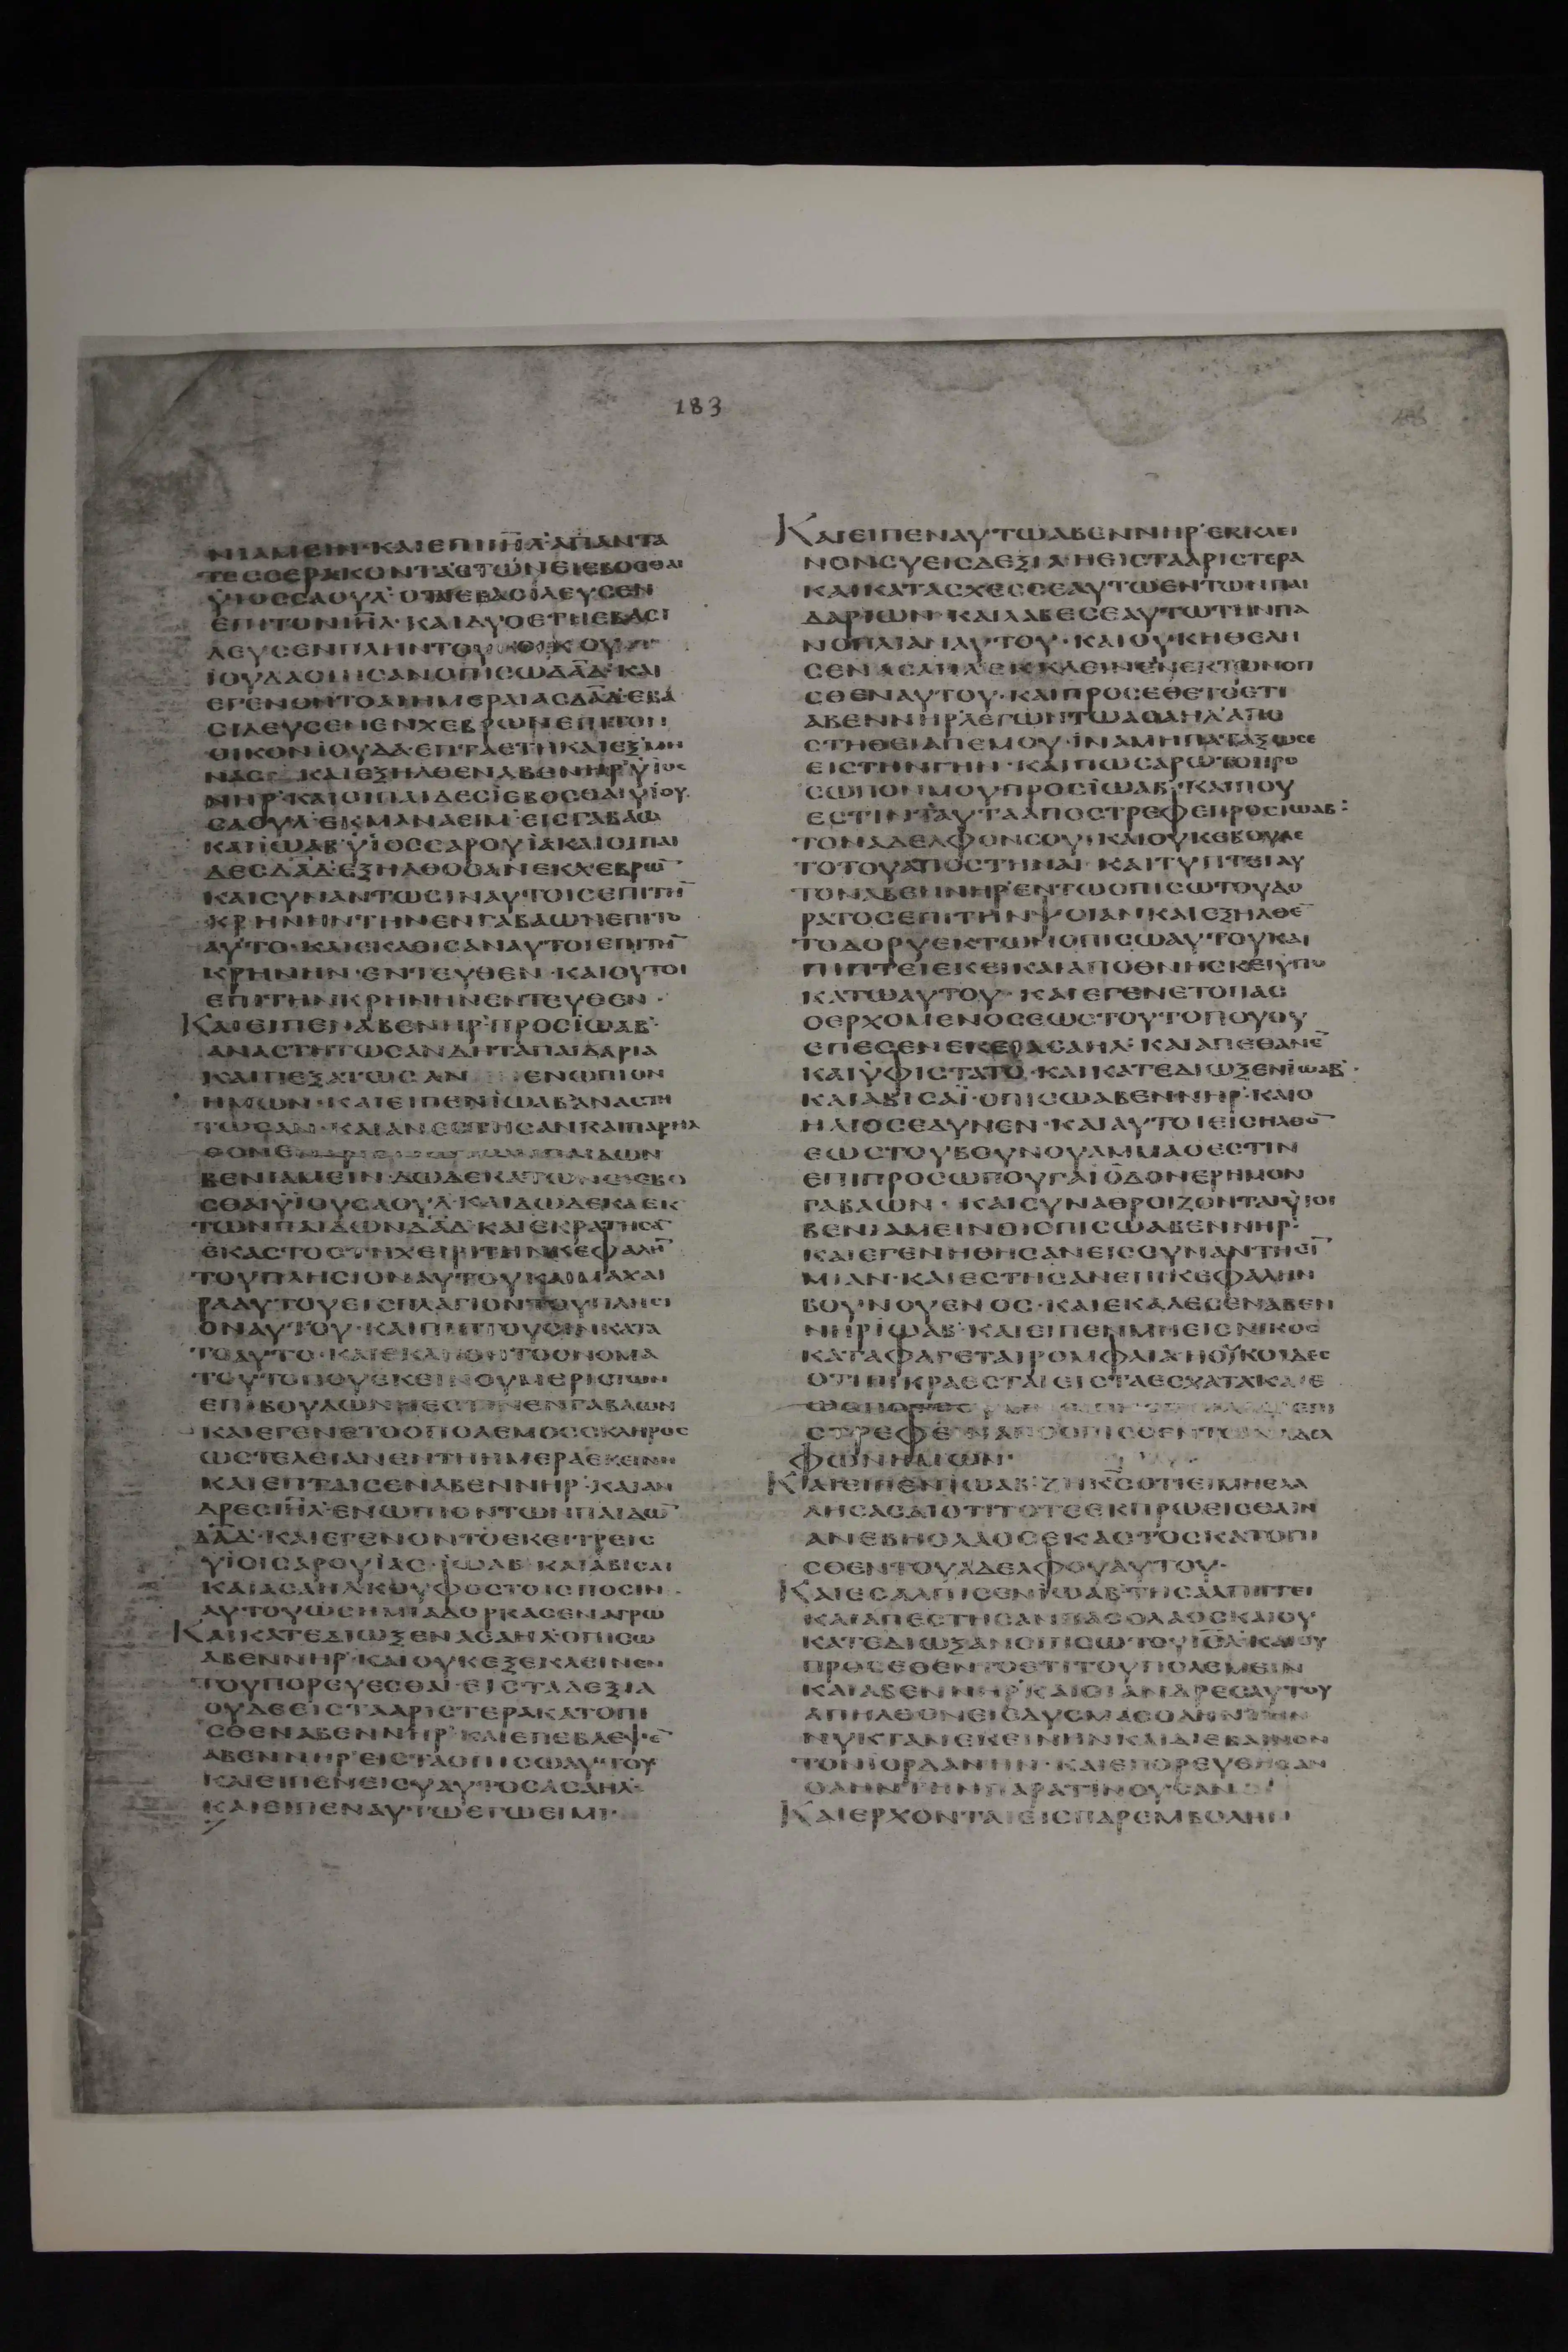 183
ΝΙΑΜΕΙΝ· ΚΑΙΕΠΙΙΗ̅Λ ΑΠΑΝΤΑ
ΤΕCCΕΡΑΚΟΝΤΑΕΤΩΝΕΙΕΒΟCΘΑΙ
ΥΙΟCCΑΟΥΛ ΟΤΕΕΒΑCΙΛΕΥCΕΝ
ΕΠΙΤΟΝΙΗ̅Λ· ΚΑΙΔΥΟΕΤΗΕΒΑCΙ
ΛΕΥCΕΝΠΛΗΝΤΟΥ ΟΙΚΟΥ
ΙΟΥΔΑΟΙΗCΑΝΟΠΙCΩΔΑ̅Δ ΚΑΙ
ΕΓΕΝΟΝΤΟΑΙΗΜΕΡΑΙΑCΔΑ̅Δ ΕΒΑ
CΙΛΕΥCΕΝΕΝΧΕΒΡΩΝΕΠΙΤΟΝ
ΟΙΚΟΝΙΟΥΔΑ ΕΠΤΑΕΤΗΚΑΙΕΞΜΗ
ΝΑC ΚΑΙΕΞΗΛΘΕΝΑΒΕΝΗΡ ΥΙΟC
ΝΗΡ ΚΑΙΟΙΠΑΙΔΕCΙΕΒΟCΘΑΙΥΙΟΥ
CΑΟΥΛ ΕΚΜΑΝΑΕΙΜ ΕΙCΓΑΒΑΩ
ΚΑΙΙΩΑΒ ΥΙΟCCΑΡΟΥΙΑ ΚΑΙΟΙΠΑΙ
ΔΕCΔΑ̅Δ ΕΞΗΛΘΟCΑΝΕΚΧΕΒΡΩ̅
ΚΑΙCΥΝΑΝΤΩCΙΝΑΥΤΟΙCΕΠΙΤΗ̅
ΚΡΗΝΗΝΤΗΝΕΝΓΑΒΑΩΝΕΠΙΤΟ
ΑΥΤΟ· ΚΑΙΕΚΑΘΙCΑΝΑΥΤΟΙΕΠΙΤΗ̅
ΚΡΗΝΗΝ· ΕΝΤΕΥΘΕΝ· ΚΑΙΟΥΤΟΙ
ΕΠΙΤΗΝΚΡΗΝΗΝΕΝΤΕΥΘΕΝ·
ΚΑΙΕΙΠΕΝΑΒΕΝΗΡ ΠΡΟCΙΩΑΒ·
ΑΝΑCΤΗΤΩCΑΝΔΗΤΑΠΑΙΔΑΡΙΑ
ΚΑΙΠΕΞΑΤΩCΑΝ ΕΝΩΠΙΟΝ
ΗΜΩΝ· ΚΑΙΕΙΠΕΝΙΩΑΒ ΑΝΑCΤΗ
ΤΩCΑΝ· ΚΑΙΑΝΕCΤΗCΑΝΚΑΙΠΑΡΗΛ
ΘΟΝΕΝ ΠΑΙΔΩΝ
ΒΕΝΙΑΜΕΙΝ ΔΩΔΕΚΑΤΩΝΕΙΕΒΟ
CΘΑΙΥΙΟΥCΑΟΥΛ· ΚΑΙΔΩΔΕΚΑΕΚ
ΤΩΝΠΑΙΔΩΝΔΑ̅Δ ΚΑΙΕΚΡΑΤΗCΕ̅
ΕΚΑCΤΟCΤΗΧΕΙΡΙΤΗΝΚΕΦΑΛΗ̅
ΤΟΥΠΛΗCΙΟΝΑΥΤΟΥΚΑΙΜΑΧΑΙ
ΡΑΑΥΤΟΥΕΙCΠΛΑΓΙΟΝΤΟΥΠΛΗCΙ
ΟΝΑΥΤΟΥ· ΚΑΙΠΙΠΤΟΥCΙΝΚΑΤΑ
ΤΟΑΥΤΟ· ΚΑΙΕΚΛΗΘΗΤΟΟΝΟΜΑ
ΤΟΥΤΟΠΟΥΕΚΕΙΝΟΥΜΕΡΙCΤΩΝ
ΕΠΙΒΟΥΛΩΝΗΕCΤΙΝΕΝΓΑΒΑΩΝ
ΚΑΙΕΓΕΝΕΤΟΟΠΟΛΕΜΟCCΚΛΗΡΟC
ΩCΤΕΛΕΙΑΝΕΝΤΗΗΜΕΡΑΕΚΕΙΝΗ
ΚΑΙΕΠΤΑΙCΕΝΑΒΕΝΝΗΡ· ΚΑΙΑΝ
ΔΡΕCΙΗ̅Λ ΕΝΩΠΙΟΝΤΩΝΠΑΙΔΩ̅
ΔΑ̅Δ· ΚΑΙΕΓΕΝΟΝΤΟΕΚΕΙΤΡΕΙC
ΥΙΟΙCΑΡΟΥΙΑC· ΙΩΑΒ ΚΑΙΑΒΙCΑΙ
ΚΑΙΑCΑΗΛ ΚΟΥΦΟCΤΟΙCΠΟCΙΝ·
ΑΥΤΟΥΩCΗΜΙΑΔΟΡΚΑCΕΝΑΓΡΩ
ΚΑΙΚΑΤΕΔΙΩΞΕΝΑCΑΗΛ ΟΠΙCΩ
ΑΒΕΝΝΗΡ ΚΑΙΟΥΚΕΞΕΚΛΕΙΝΕΝ
ΤΟΥΠΟΡΕΥΕCΘΑΙ· ΕΙCΤΑΔΕΞΙΑ
ΟΥΔΕΕΙCΤΑΑΡΙCΤΕΡΑΚΑΤΟΠΙ
CΘΕΝΑΒΕΝΝΗΡ ΚΑΙΕΠΕΒΛΕΨΕ̅
ΑΒΕΝΝΗΡ ΕΙCΤΑΟΠΙCΩΑΥΤΟΥ
ΚΑΙΕΙΠΕΝΕΙCΥΑΥΤΟCΑCΑΗΛ
ΚΑΙΕΙΠΕΝΑΥΤΩΕΓΩΕΙΜΙ·
ΚΑΙΕΙΠΕΝΑΥΤΩΑΒΕΝΝΗΡ ΕΚΚΛΕΙ
ΝΟΝCΥΕΙCΔΕΞΙΑΗΕΙCΤΑΑΡΙCΤΕΡΑ
ΚΑΙΚΑΤΑCΧΕCCΕΑΥΤΩΕΝΤΩΝΠΑΙ
ΔΑΡΙΩΝ· ΚΑΙΛΑΒΕCΕΑΥΤΩΤΗΝΠΑ
ΝΟΠΛΙΑΝΑΥΤΟΥ· ΚΑΙΟΥΚΗΘΕΛΗ
CΕΝΑCΑΗΛ ΕΚΚΛΕΙΝΕΝΕΚΤΩΝΟΠ
CΘΕΝΑΥΤΟΥ· ΚΑΙΠΡΟCΕΘΕΤΟΕΤΙ
ΑΒΕΝΝΗΡ ΛΕΓΩΝΤΩΑCΑΗΛ ΑΠΟ
CΤΗΘΕΙΑΠΕΜΟΥ· ΙΝΑΜΗΠΑΤΑΞΩCΕ
ΕΙCΤΗΝΓΗΝ· ΚΑΙΠΩCΑΡΩΤΟΠΡΟ
CΩΠΟΝΜΟΥΠΡΟCΙΩΑΒ· ΚΑΙΠΟΥ
ΕCΤΙΝΤΑΥΤΑΑΠΟCΤΡΕΦΕΠΡΟCΙΩΑΒ:
ΤΟΝΑΔΕΛΦΟΝCΟΥ· ΚΑΙΟΥΚΕΒΟΥΛΕ
ΤΟΤΟΥΑΠΟCΤΗΝΑΙ· ΚΑΙΤΥΠΤΕΙΑΥ
ΤΟΝΑΒΕΝΝΗΡ ΕΝΤΩΟΠΙCΩΤΟΥΔΟ
ΡΑΤΟCΕΠΙΤΗΝΨΟΙΑΝ ΚΑΙΕΞΗΛΘΕ̅
ΤΟΔΟΡΥΕΚΤΩΝΟΠΙCΩΑΥΤΟΥΚΑΙ
ΠΙΠΤΕΙΕΚΕΙΚΑΙΑΠΟΘΝΗCΚΕΙΥΠΟ
ΚΑΤΩΑΥΤΟΥ· ΚΑΙΕΓΕΝΕΤΟΠΑC
ΟΕΡΧΟΜΕΝΟCΕΩCΤΟΥΤΟΠΟΥΟΥ
ΕΠΕCΕΝΕΚΕΙΑCΑΗΛ ΚΑΙΑΠΕΘΑΝΕ̅
ΚΑΙΥΦΙCΤΑΤΟ· ΚΑΙΚΑΤΕΔΙΩΞΕΝΙΩΑΒ·
ΚΑΙΑΒΙCΑΙ· ΟΠΙCΩΑΒΕΝΝΗΡ· ΚΑΙΟ
ΗΛΙΟCΕΔΥΝΕΝ· ΚΑΙΑΥΤΟΙΕΙCΗΛΘΟ̅
ΕΩCΤΟΥΒΟΥΝΟΥΑΜΜΑΟΕCΤΙΝ
ΕΠΙΠΡΟCΩΠΟΥΓΑΙΟΔΟΝΕΡΗΜΟΝ
ΓΑΒΑΩΝ· ΚΑΙCΥΝΑΘΡΟΙΖΟΝΤΑΙΥΙΟΙ
ΒΕΝΙΑΜΕΙΝΟΙΟΠΙCΩΑΒΕΝΝΗΡ·
ΚΑΙΕΓΕΝΗΘΗCΑΝΕΙCCΥΝΑΝΤΗCΙ̅
ΜΙΑΝ· ΚΑΙΕCΤΗCΑΝΕΠΙΚΕΦΑΛΗΝ
ΒΟΥΝΟΥΕΝΟC· ΚΑΙΕΚΑΛΕCΕΝΑΒΕΝ
ΝΗΡ ΙΩΑΒ· ΚΑΙΕΙΠΕΝΜΗΕΙCΝΙΚΟC
ΚΑΤΑΦΑΓΕΤΑΙΡΟΜΦΑΙΑ ΗΟΥΚΟΙΔΕC
ΟΤΙΠΙΚΡΑΕCΤΑΙΕΙCΤΑΕCΧΑΤΑ ΚΑΙΕ
CΤΡΕΦΕΙΝΑΠΟΟΠΙCΘΕΝΤΩΝΑΔΕΛ
ΦΩΝΗΜΩΝ·
ΚΑΙΕΙΠΕΝΙΩΑΒ· ΖΗΚ̅C̅ΟΤΙΕΙΜΗΕΛΑ
ΛΗCΑCΔΙΟΤΙΤΟΤΕΕΚΠΡΩΕΙCΘΑΙΝ
ΑΝΕΒΗΟΛΑΟCΕΚΑCΤΟCΚΑΤΟΠΙ
CΘΕΝΤΟΥΑΔΕΛΦΟΥΑΥΤΟΥ·
ΚΑΙΕCΑΛΠΙCΕΝΙΩΑΒ ΤΗCΑΛΠΙΓΓΕΙ
ΚΑΙΑΠΕCΤΗCΑΝΠΑCΟΛΑΟCΚΑΙΟΥ
ΚΑΤΕΔΙΩΞΑΝΟΠΙCΩΤΟΥΙΗ̅Λ ΚΑΙΟΥ
ΠΡΟCΕΘΕΝΤΟΕΤΙΤΟΥΠΟΛΕΜΕΙΝ
ΚΑΙΑΒΕΝΝΗΡ ΚΑΙΟΙΑΝΔΡΕCΑΥΤΟΥ
ΑΠΗΛΘΟΝΕΙCΔΥCΜΑCΟΛΗΝΤΗΝ
ΝΥΚΤΑΝΕΚΕΙΝΗΝΚΑΙΔΙΕΒΑΙΝΟΝ
ΤΟΝΙΟΡΔΑΝΗΝ· ΚΑΙΕΠΟΡΕΥΘΗCΑΝ
ΟΛΗΝΤΗΝΠΑΡΑΤΙΝΟΥCΑΝ
ΚΑΙΕΡΧΟΝΤΑΙΕΙCΠΑΡΕΜΒΟΛΗΝ